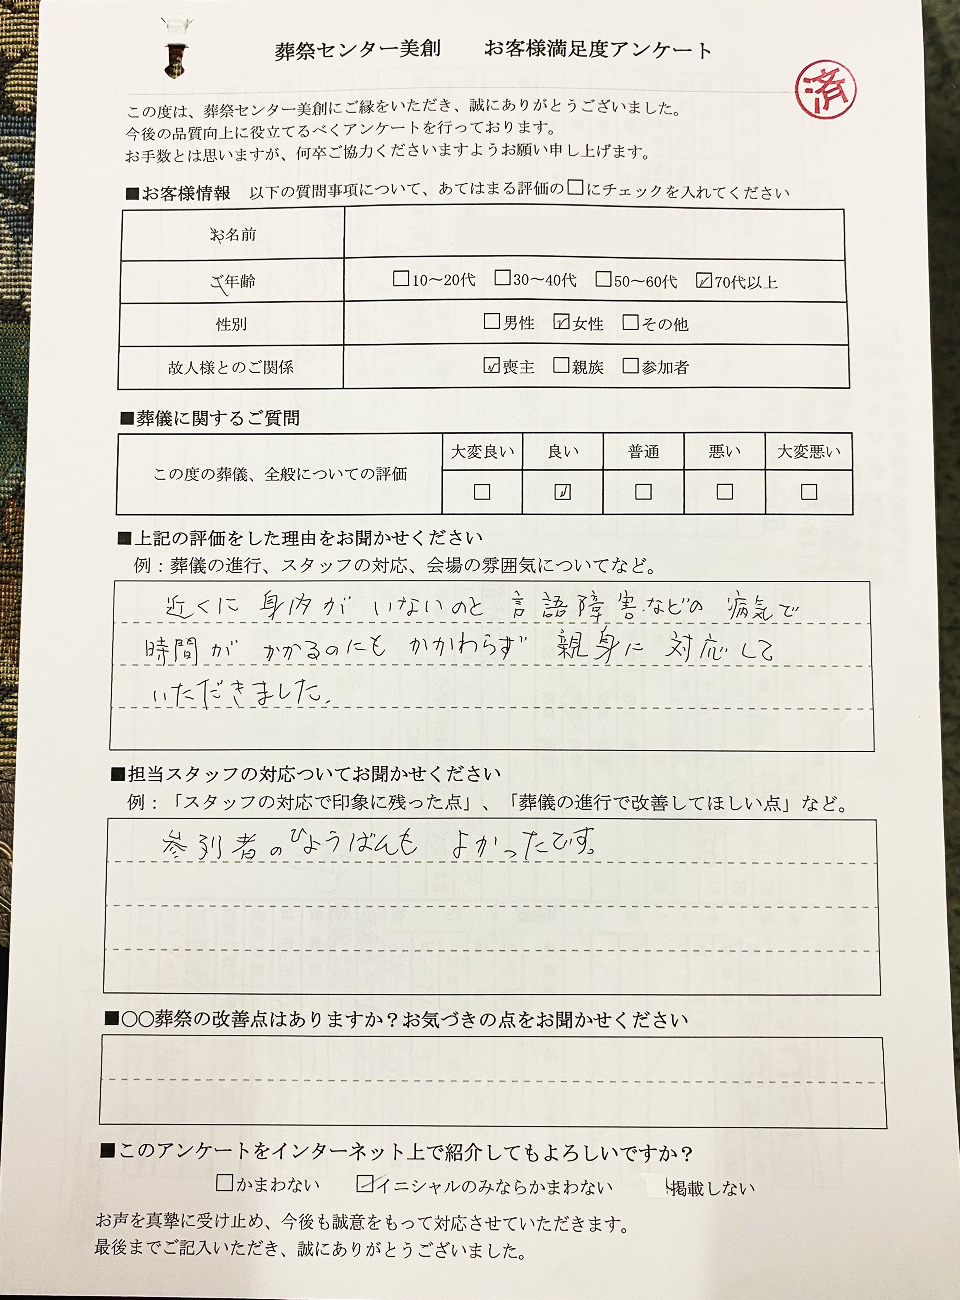 葬祭センター美創　　お客様満足度アンケート
済
この度は、葬祭センター美創にご縁をいただき、誠にありがとうございました。
今後の品質向上に役立てるべくアンケートを行っております。
お手数とは思いますが、何卒ご協力くださいますようお願い申し上げます。
■お客様情報　以下の質問事項について、あてはまる評価の□にチェックを入れてください
お名前
ご年齢　□10～20代　□30～40代　☑50～60代　☑70代以上
性別　□男性　☑女性　□その他
故人様とのご関係　☑喪主　□親族　□参加者
■葬儀に関するご質問
大変良い　良い　普通　悪い　大変悪い
この度の葬儀、全般についての評価　□　☑　□　□　□
■上記の評価をした理由をお聞かせください
例：葬儀の進行、スタッフの対応、会場の雰囲気についてなど。
近くに身内がいないのと言語障害などの病気で
時間がかかるのにもかかわらず親身に対応して
いただきました。
■担当スタッフの対応ついてお聞かせください
例：「スタッフの対応で印象に残った点」、「葬儀の進行で改善してほしい点」など。
参列者のひょうばんもよかったです。
■〇〇葬祭の改善点はありますか？お気づきの点をお聞かせください
■このアンケートをインターネット上で紹介してもよろしいですか？
□かまわない　☑イニシャルのみならかまわない　掲載しない
お声を真摯に受け止め、今後も誠意をもって対応させていただきます。
最後までご記入いただき、誠にありがとうございました。